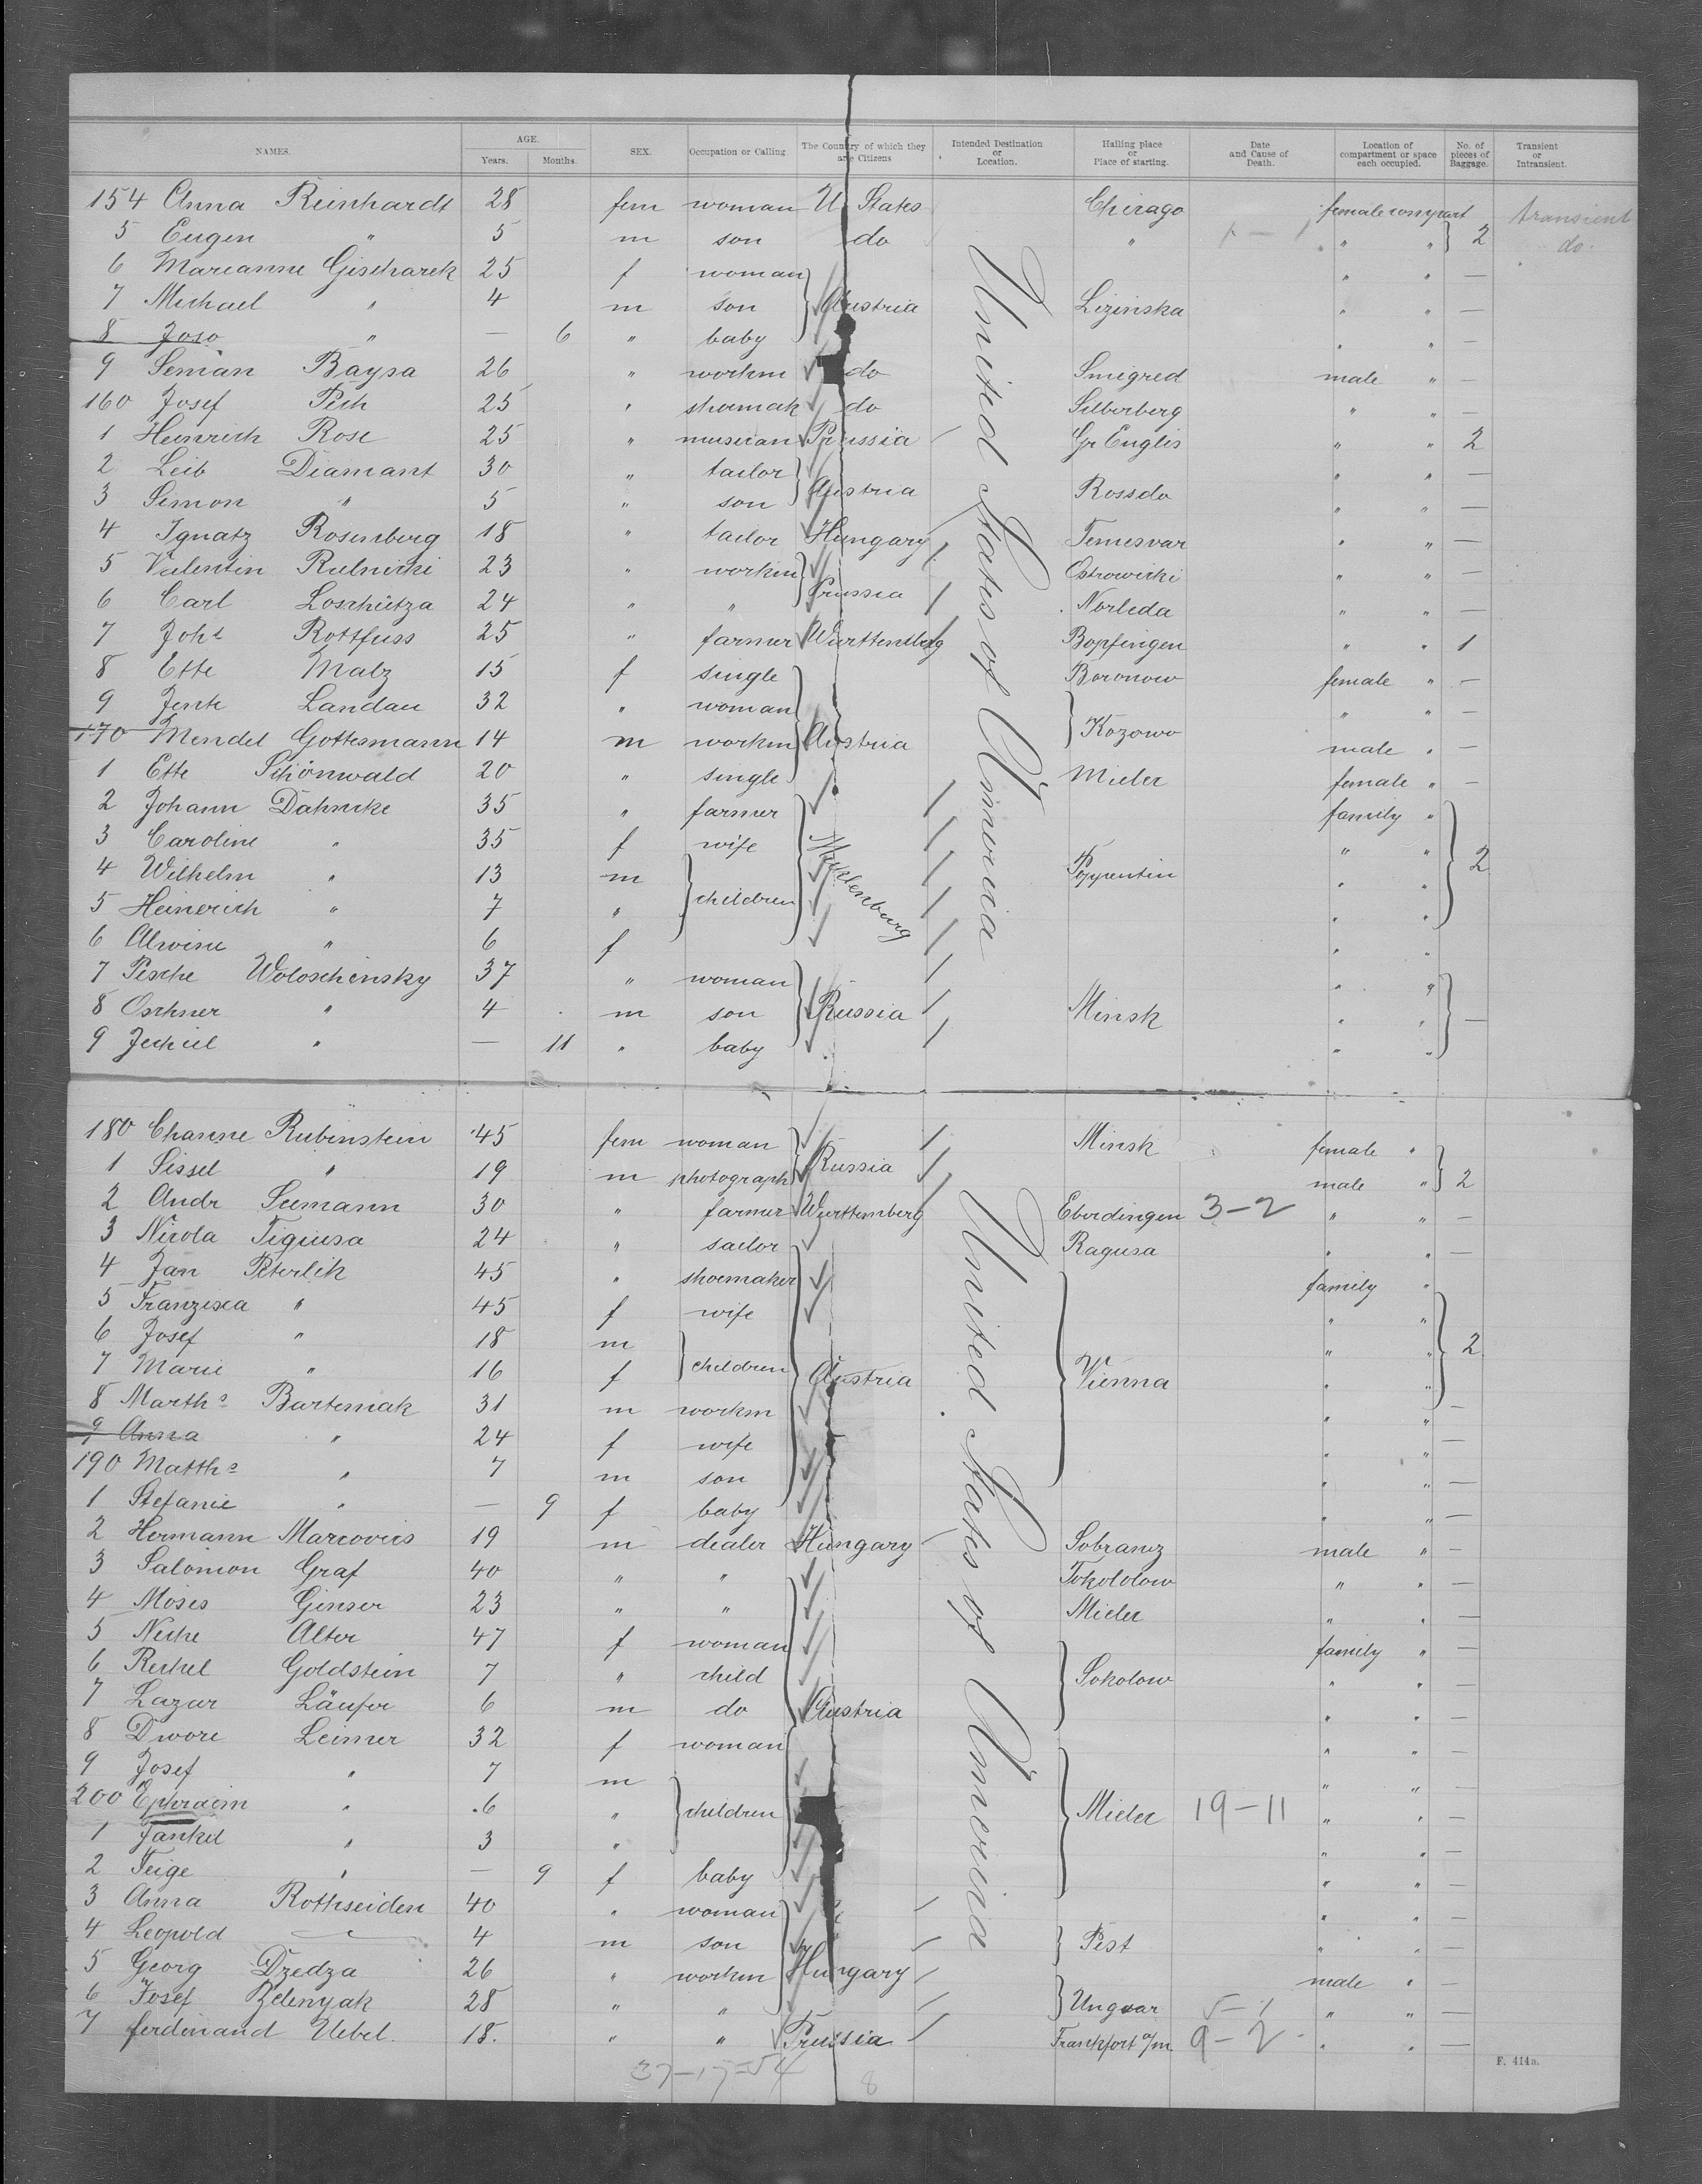 NAMES. AGE. SEX. Occupation or Calling The Country of which they are Citizens Intended Destination or Location. Hailing place or Place of starting. Date and Cause of Death. Location of compartment or space each occupied. No. of pieces of Baggage. Transient or Intransient.
Years. Months.
154 Anna Reinhardt 28 fem woman U States Chicago female compart transient
5 Eugen " 5 m son do " " " 2 do.
6 Marianne Gischarek 25 f woman " " —
7 Michael " 4 m son Austria Lizinska " " —
8 Joso " — 6 " baby " " —
9 Seman Baysa 26 " workm do Smigred male " —
160 Josef Pech 25 " shoemak do Silberberg " " —
1 Heinrich Rose 25 " musician Prussia Gr Englis " " 2
2 Leib Diamant 30 " tailor " " —
3 Simon " 5 " son Austria Rossdo " " —
4 Ignatz Rosenberg 18 " tailor Hungary Temesvar " " —
5 Valentin Rulnicki 23 " workm Ostrowicki " " —
6 Carl Loschütza 24 " " Prussia Norleda " " —
7 Joh. Rottfuss 25 " farmer Wurttemberg Bopfingen " " 1
8 Ette Malz 15 f single Boronow female " —
9 Jente Landau 32 " woman " " —
170 Mendel Gottesmann 14 m workm Austria Kozowo male " —
1 Ette Schönwald 20 " single Mielec female " —
2 Johann Dahncke 35 " farmer family "
3 Caroline " 35 f wife " "
4 Wilhelm " 13 m Mecklenburg Poppentin " " 2
5 Heinerich " 7 " children " "
6 Alwine " 6 f " "
7 Pesche Woloschinsky 37 " woman " "
8 Oschner " 4 m son Russia Minsk " " —
9 Jechiel " — 11 " baby " "
United States of America
180 Channe Rubinstein 45 fem woman Minsk female "
1 Sissel " 19 m photograph Russia male " 2
2 Andr Seemann 30 " farmer Wurttemberg Eberdingen 3-2 " " —
3 Nicola Tigiusa 24 " sailor Ragusa " " —
4 Jan Peterlik 45 " shoemaker family "
5 Franzisca " 45 f wife " "
6 Josef " 18 m " " 2
7 Marie " 16 f children Austria Vienna " "
8 Marth. Bartemak 31 m workm " " —
9 Anna " 24 f wife " " —
190 Matth. " 7 m son " " —
1 Stefanie " — 9 f baby " " —
2 Hermann Marcovics 19 m dealer Hungary Sobrancz male " —
3 Salomon Graf 40 " " Tokololow " " —
4 Moses Ginser 23 " " Mielec " " —
5 Neche Alter 47 f woman family " —
6 Rechel Goldstein 7 " child Sokolow " " —
7 Lazar Läufer 6 m do Austria " " —
8 Dwore Leimer 32 f woman " " —
9 Josef " 7 m " " —
200 Ephraim " 6 " children Mielec 19-11 " " —
1 Jankel " 3 " " " —
2 Feige " — 9 f baby " " —
3 Anna Rothseiden 40 " woman " " —
4 Leopold " 4 m son Pest " " —
5 Georg Dzedza 26 " workm Hungary male " —
6 Josef Zelenyak 28 " " Ungvar " " —
7 ferdinand Uebel. 18. " " Prussia Frankfort a/m 9-2 " " —
United States of America
37-17=54 8
F. 414a.